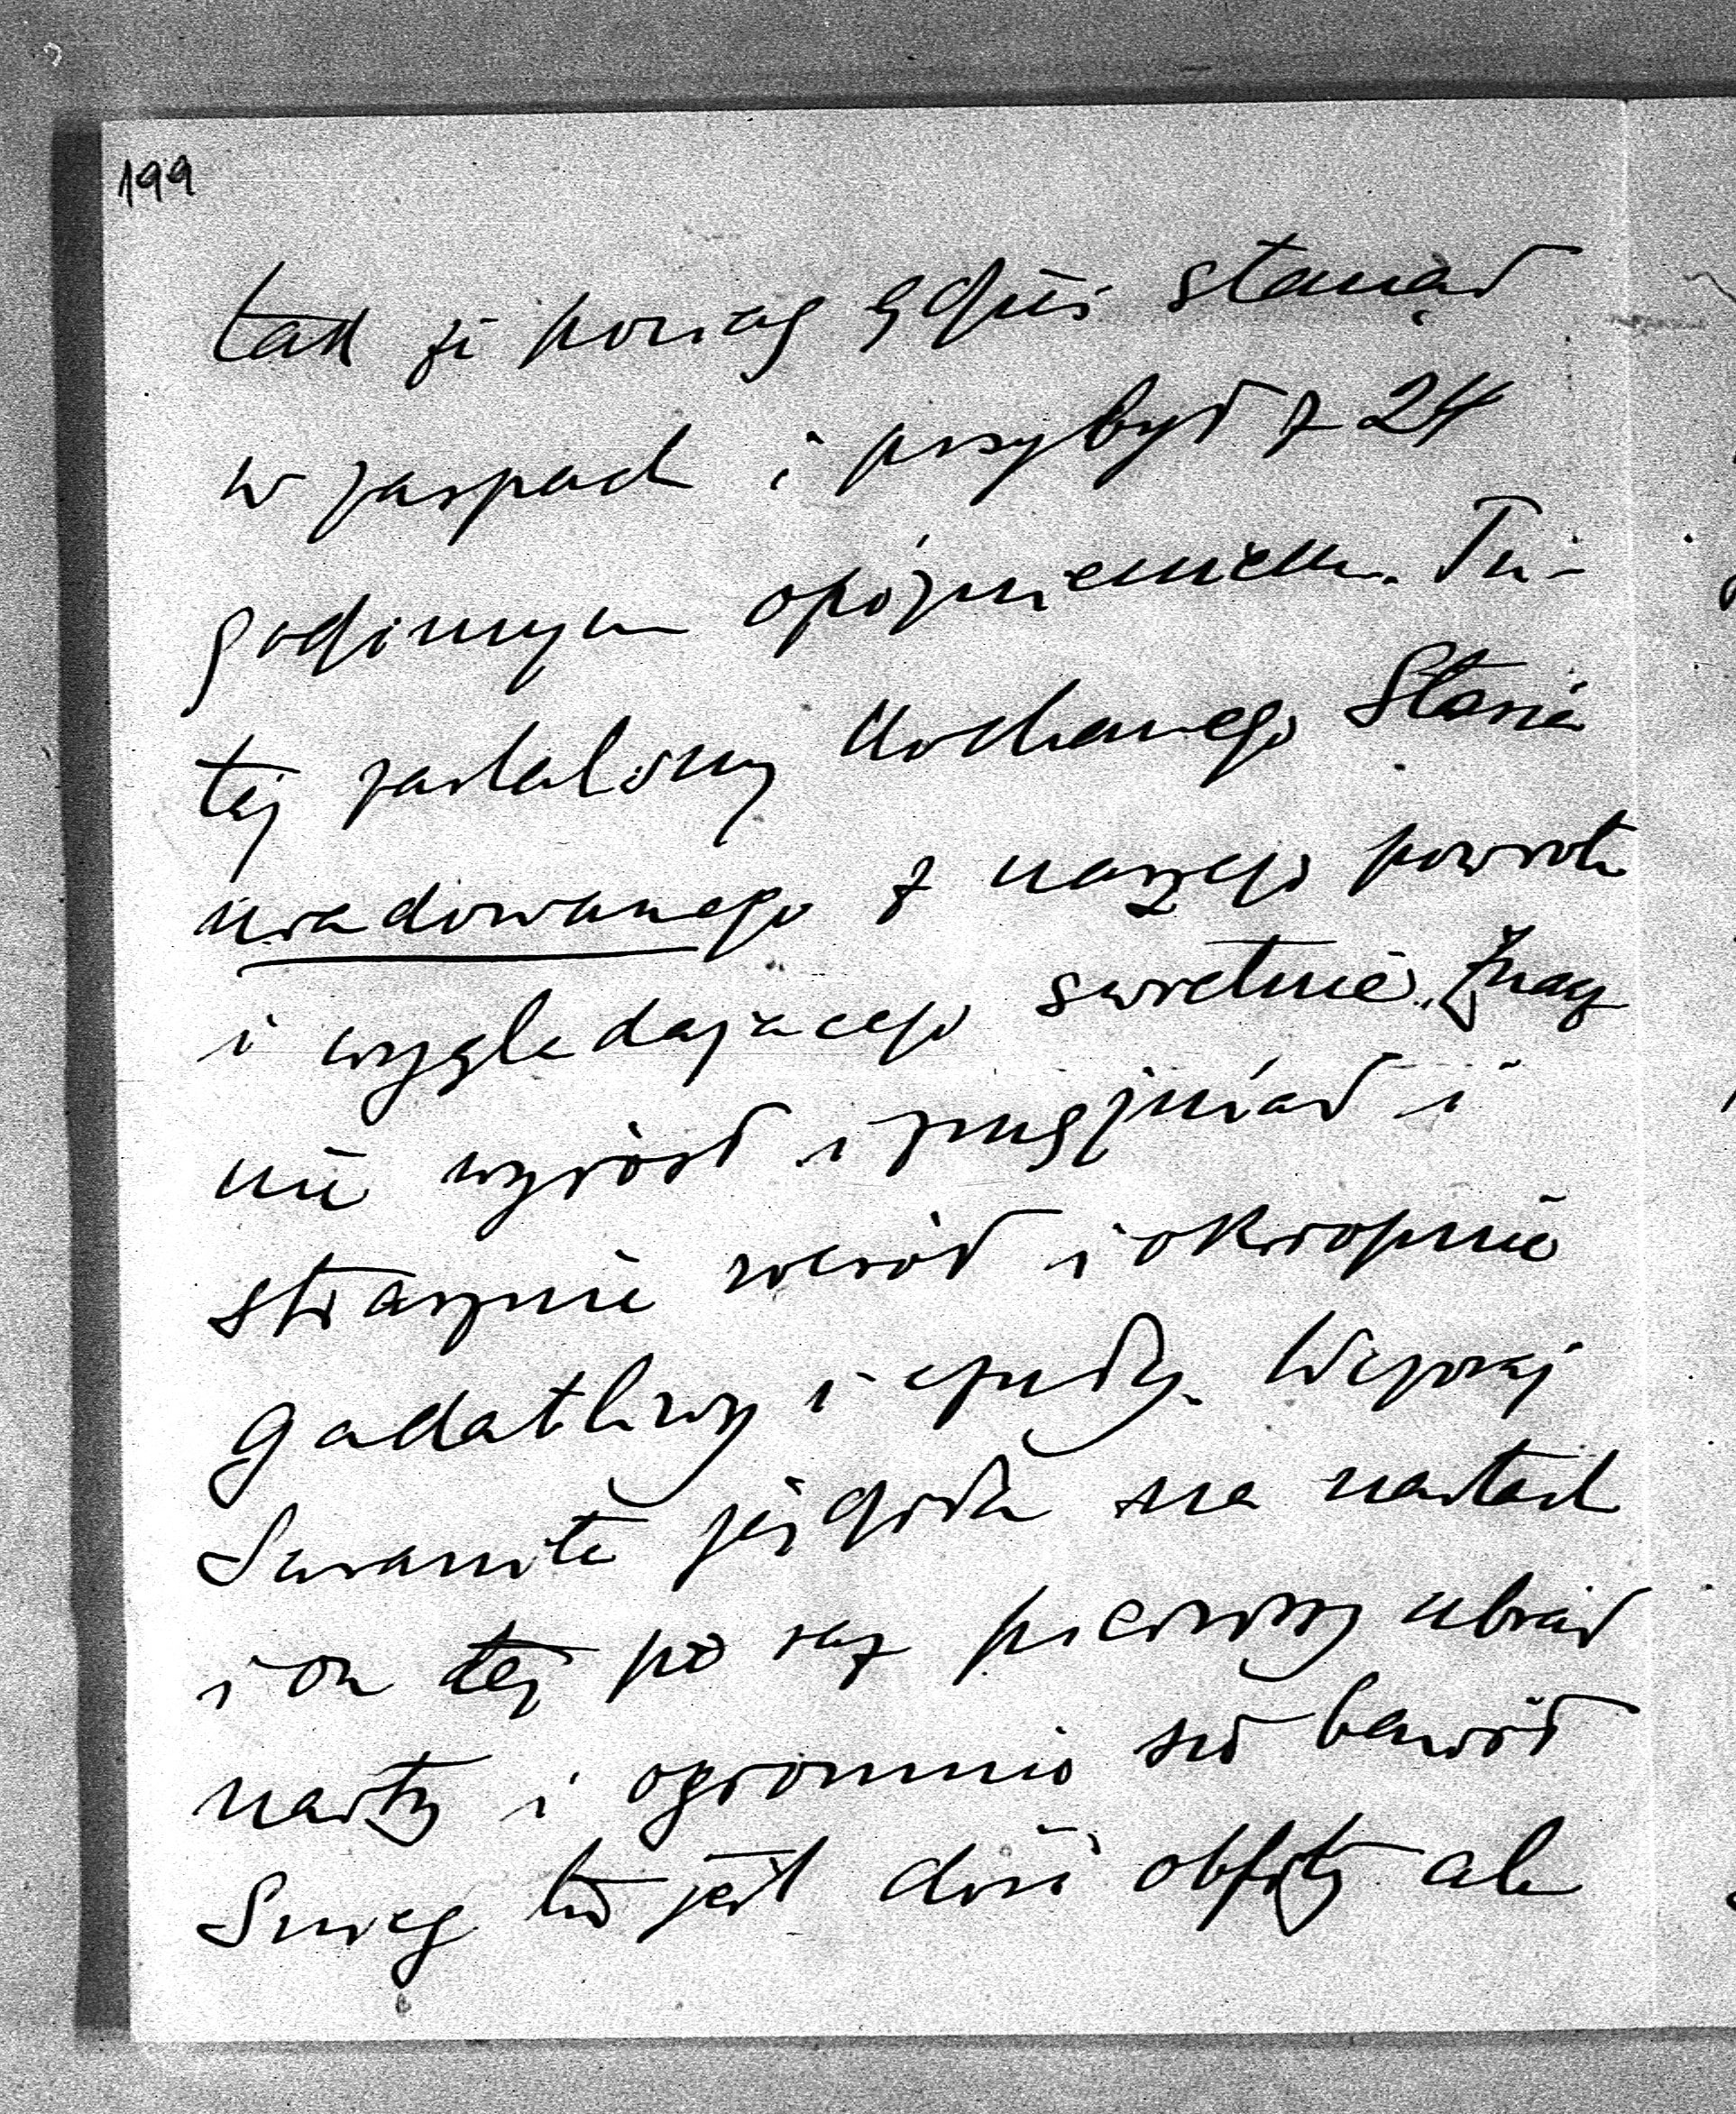 199
tak że pociąg gdzieś stanął
w zaspach i przybył z 24
godzinnym opóźnieniem. Tu-
tej zastaliśmy kochanego Stasia
uradowanego z naszego powrotu
i wyglądającego świetnie. Znacz
nie wyrósł i zmężniał i
strasznie wesół i okropnie
gadatliwy i czuły. Wczoraj
Sawanita jeździła na nartach
i on też po raz pierwszy ubrał
narty i ogromnie się bawił
Śnieg tu jest dość obfity ale